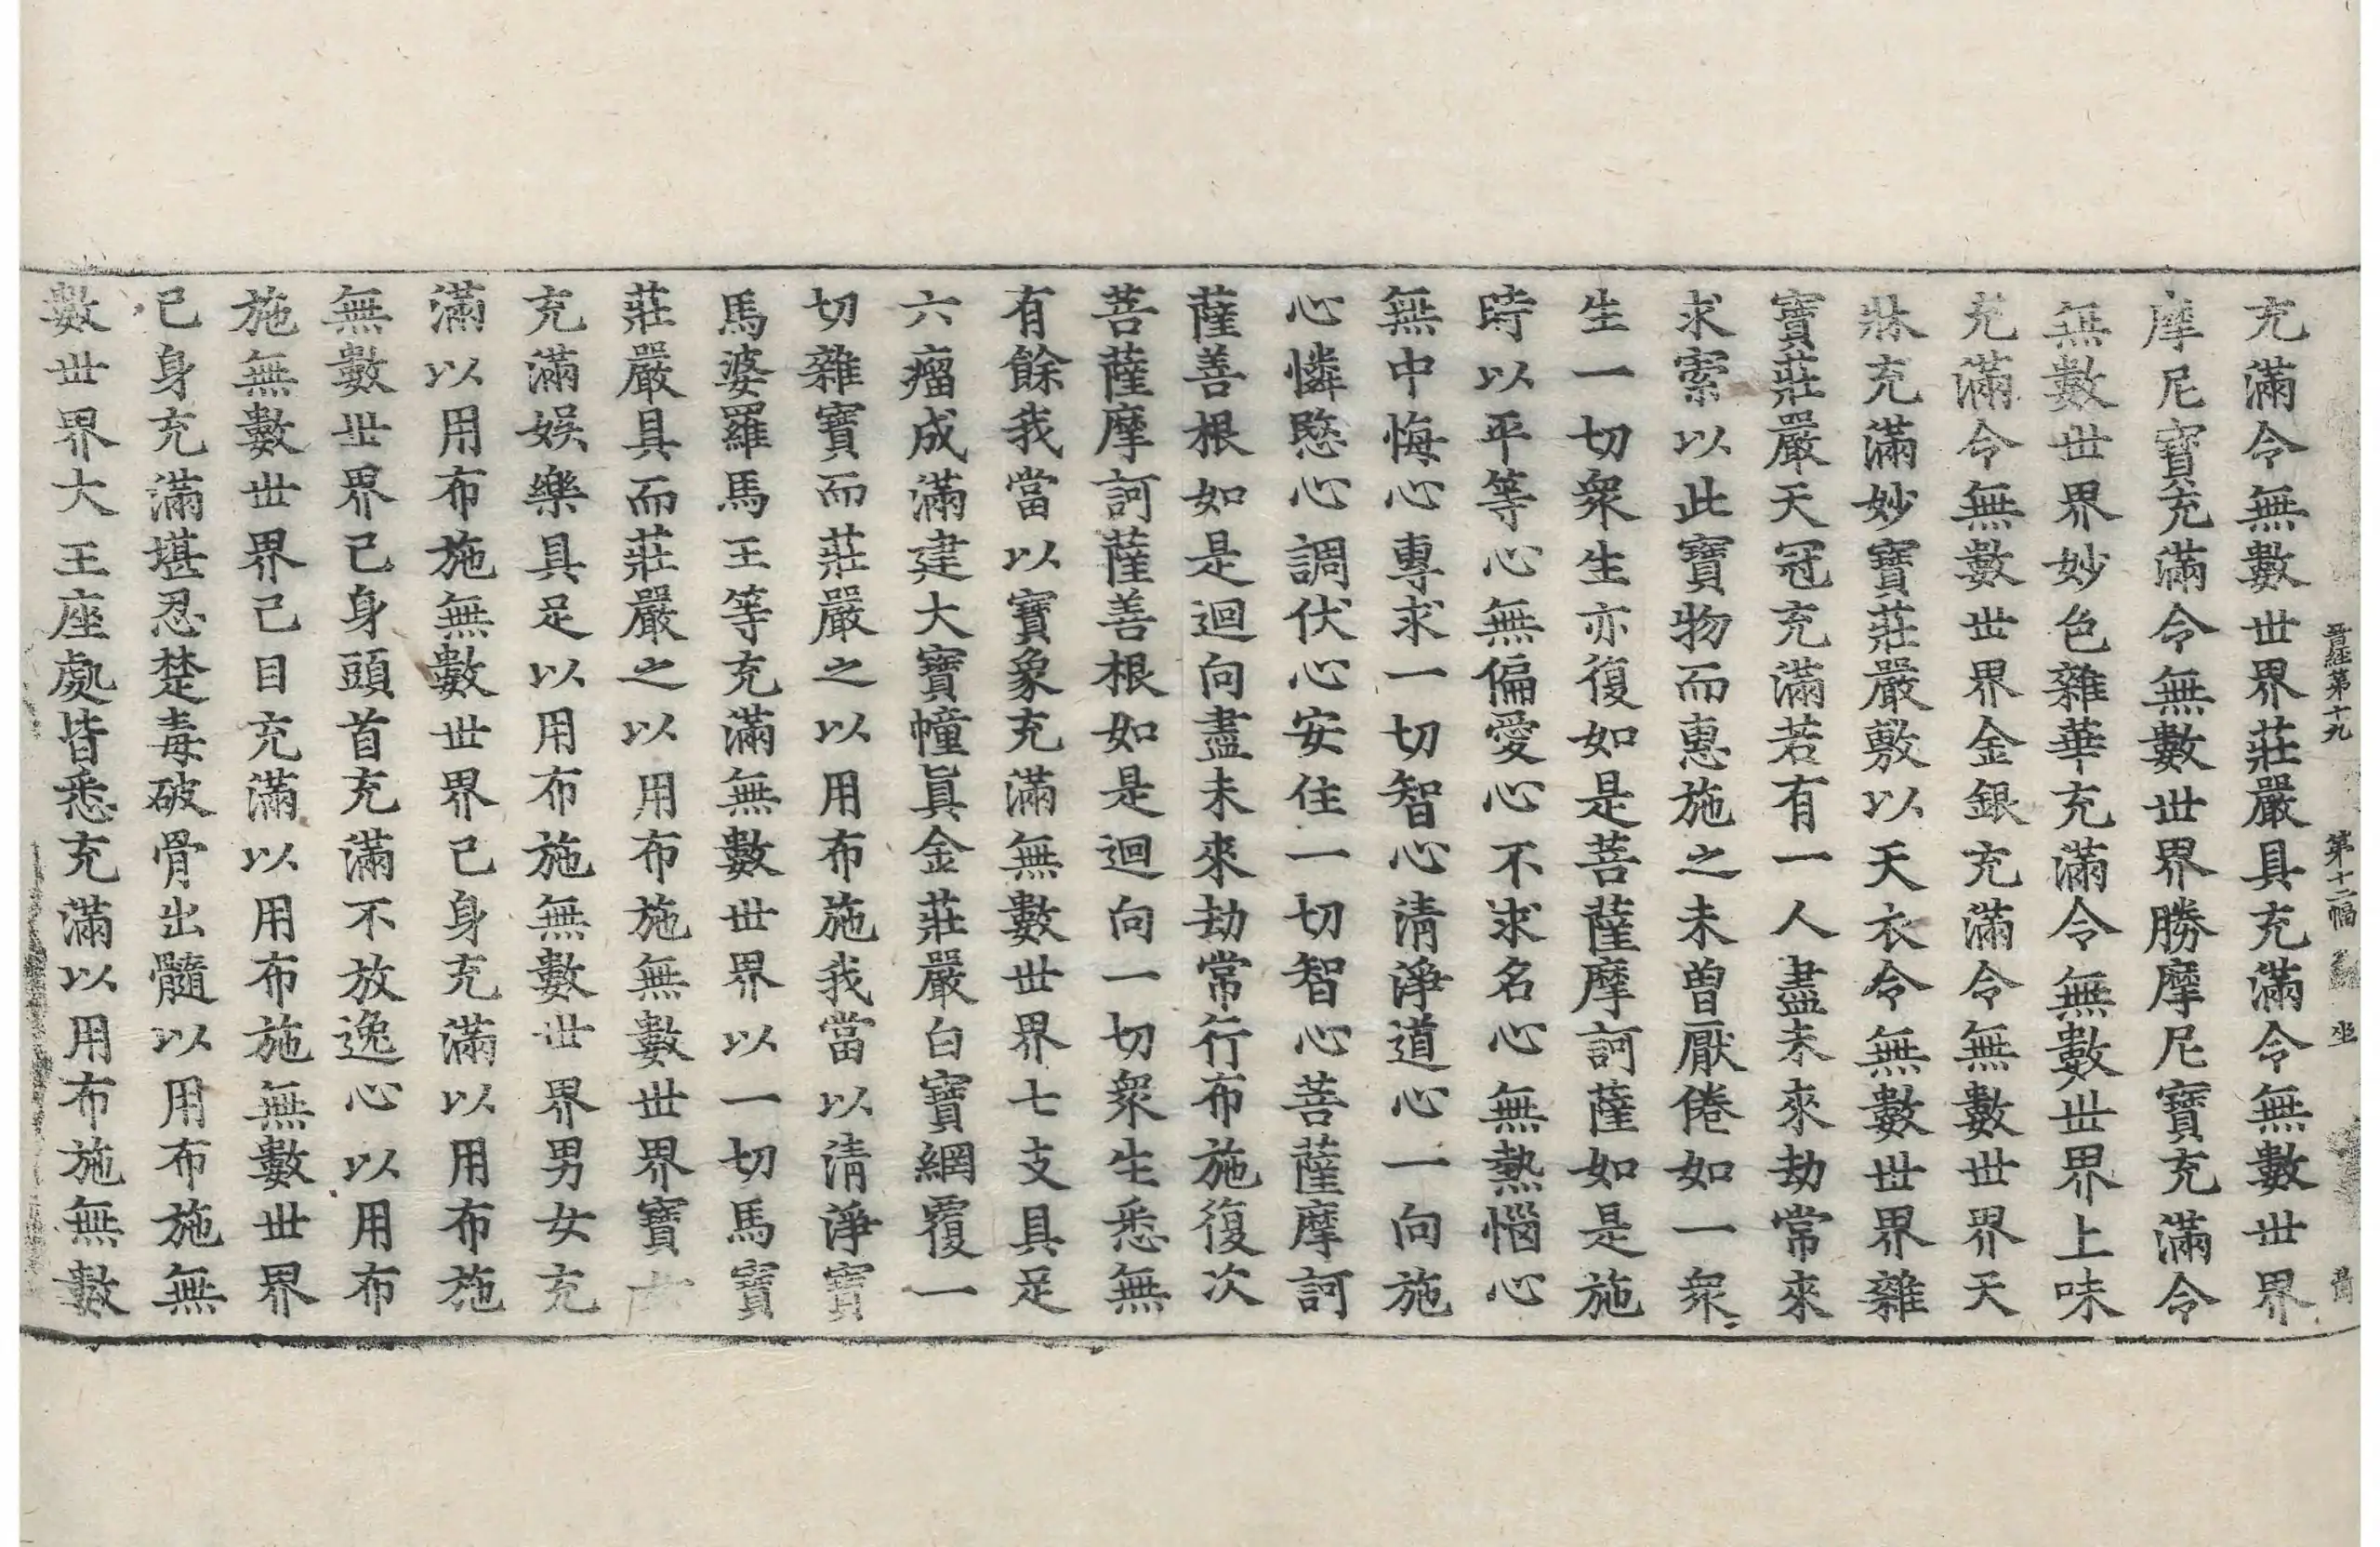 晉經第十九 第十二幅 坐
充滿令無數世界莊嚴具充滿令無數世界
摩尼寶充滿令無數世界勝摩尼寶充滿令
無數世界妙色雜華充滿令無數世界上味
充滿令無數世界金銀充滿令無數世界天
牀充滿妙寶莊嚴敷以天衣令無數世界雜
寶莊嚴天冠充滿若有一人盡未來劫常來
求索以此寶物而惠施之未曾厭倦如一衆
生一切衆生亦復如是菩薩摩訶薩如是施
時以平等心無偏愛心不求名心無熱惱心
無中悔心專求一切智心清淨道心一向施
心憐愍心調伏心安住一切智心菩薩摩訶
薩善根如是迴向盡未來劫常行布施復次
菩薩摩訶薩善根如是迴向一切衆生悉無
有餘我當以寶象充滿無數世界七支具足
六瘤成滿建大寶幢眞金莊嚴白寶網覆一
切雜寶而莊嚴之以用布施我當以清淨寶
馬婆羅馬王等充滿無數世界以一切馬寶
莊嚴具而莊嚴之以用布施無數世界寶女
充滿娛樂具足以用布施無數世界男女充
滿以用布施無數世界己身充滿以用布施
無數世界己身頭首充滿不放逸心以用布
施無數世界己目充滿以用布施無數世界
己身充滿堪忍楚毒破骨出髓以用布施無
數世界大王座處皆悉充滿以用布施無數